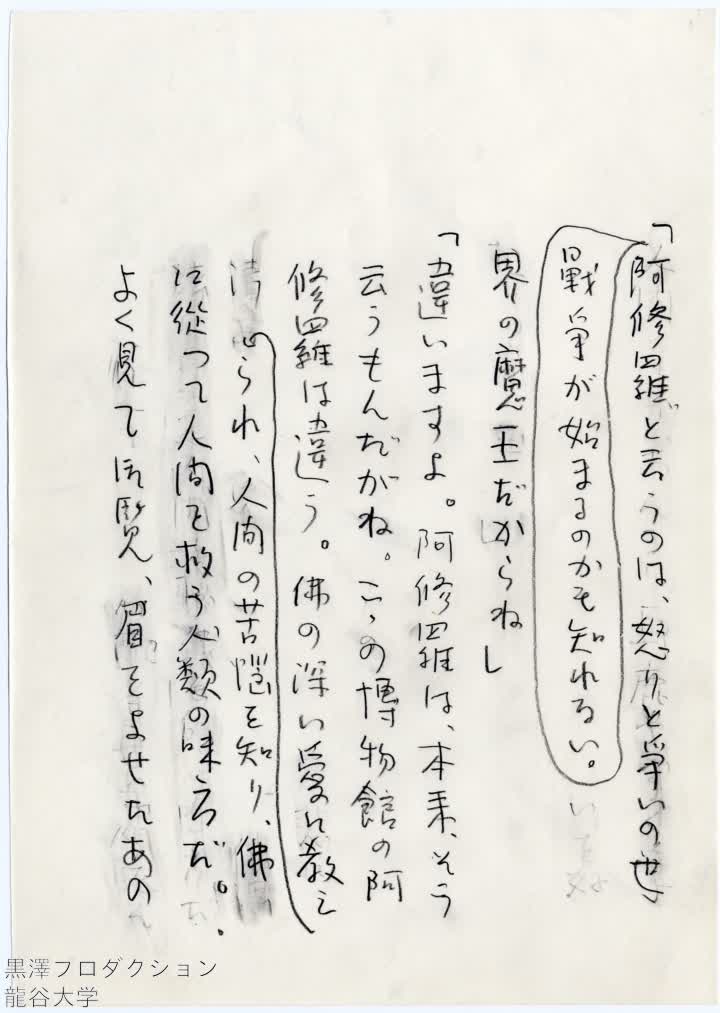 「阿修羅と云うのは、怒りと争いの世
戦争が始まるのかも知れない。
界の魔王だからね」
「違いますよ。阿修羅は、本来、そう
云うもんだがね。こゝの博物館の阿
修羅は違う。佛の深い愛に教え
られ、人間の苦悩を知り、佛
に從つて人間を救う人類の味方だ。
よく見て御覧、眉をよせたあの
黒澤プロダクション
龍谷大学